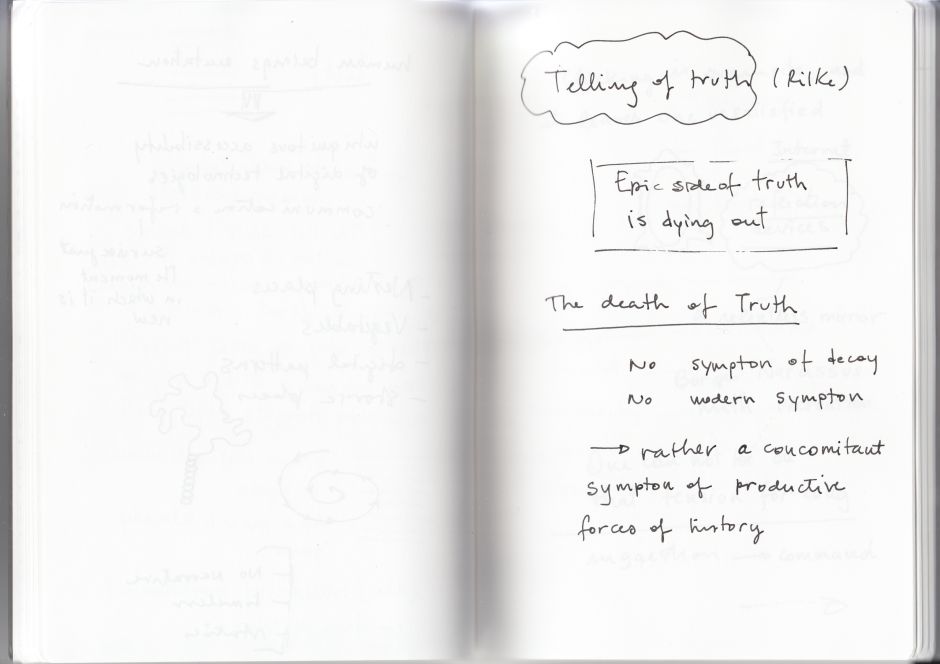 Telling of truth (Rilke)
Epic side of truth
is dying out
The death of Truth
No sympton of decay
No modern sympton
→ rather a concomitant
sympton of productive
forces of history